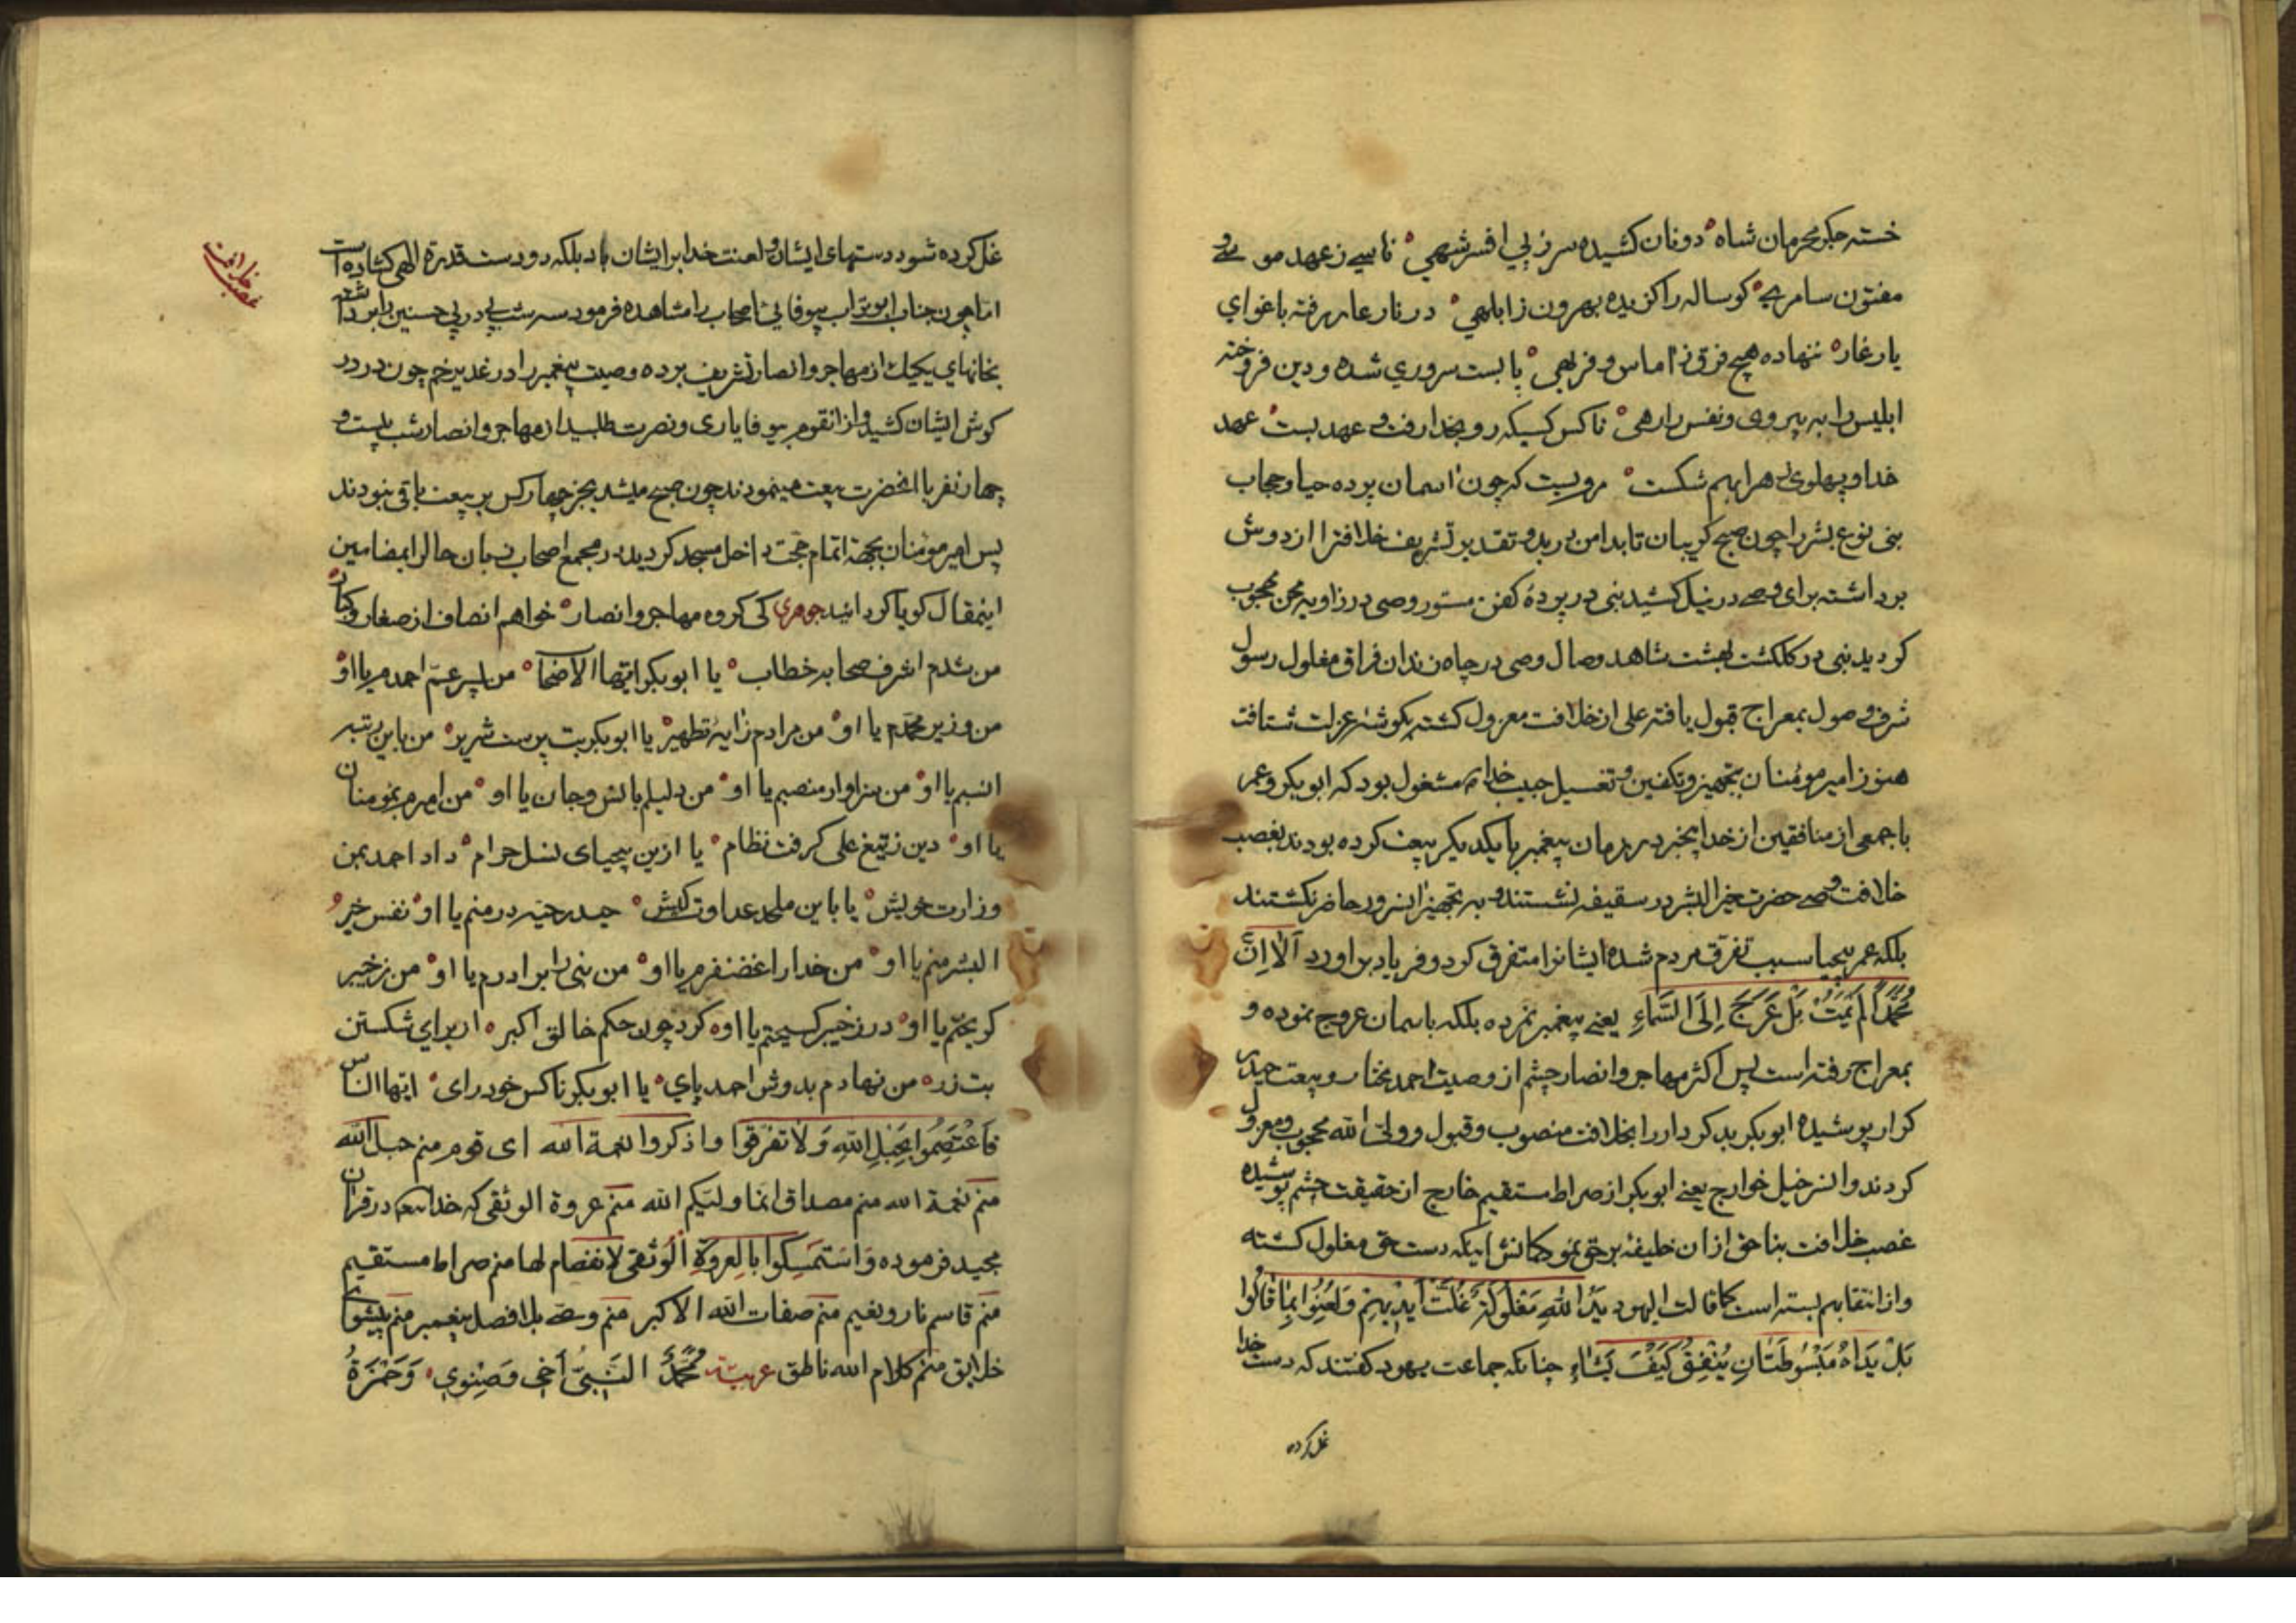 خسته جکر محرمان شاه دونان کشیده سر ز پی افسر شهی ناسی ز عهد موسی و
مفتون سامری کوساله را کزیده بهرون ز ابلهی در نار عار رفته باغوای
یار غار ننهاده هیچ فرق ز اماس و فربهی پا بست سروری شده و دین فروخته
ابلیس را به پیروی و نفس را رهی ناکس کسیکه رو بخدا رفت و عهد بست عهد
خدا و پهلوی زهرا بهم شکست مرویست که چون اسمان پرده حیا و حجاب
بنی نوع بشر را چون صبح کریبان تا بدامن درید و تقدیر تشریف خلافترا از دوش
برداشته برای وصی در نیل کشید نبی در پردهٔ کفن مستور وصی در زاویه محن محجوب
کردید نبی در کلکشت بهشت شاهد وصال وصی در چاه زندان فراق مغلول رسول
شرف وصول بمعراج قبول یافته علی از خلافت معزول کشته بکوشهٔ عزلت شتافت
هنوز امیر مومنان بتجهیز و تکفین و تغسیل حبیب خدا مشغول بود که ابوبکر و عمر
با جمعی از منافقین از خدا بیخبر در زمان پیغمبر با یکدیکر بیعت کرده بودند بغصب
خلافت وصی حضرت خیر البشر در سقیفه نشستند و به تجهیز انسرور حاضر نکشتند
بلکه عمر بیحیا سبب تفرق مردم شده ایشانرا متفرق کرد و فریاد بر اورد اَلا اِنَّ
مُحَمَّداً لَمْ یَمُتْ بَلْ عَرَجَ اِلَی السَّمآءِ یعنی پیغمبر نمرده بلکه باسمان عروج نموده و
بمعراج رفته است پس اکثر مهاجر و انصار چشم از وصیت احمد مختار و بیعت حیدر
کرار پوشیده ابوبکر بدکردار را بخلافت منصوب و قبول و ولی الله محجوب و معزول
کردند و انسر خیل خوارج یعنی ابوبکر از صراط مستقیم خارج از حقیقت چشم پوشیده
غصب خلافت بناحق از ان خلیفهٔ بر حق نمود کمانش اینکه دست حق مغلول کشته
و از انتقام بسته است کما قالت الیهود یَدُ اللهِ مَغْلُولَةٌ غُلَّتْ اَیْدیهِمْ وَ لُعِنُوا بِمٰا قٰالُوا
بَلْ یَدَاهُ مَبْسُوطَتٰانِ یُنْفِقُ کَیْفَ یَشٰاءِ چنانکه جماعت یهود کفتند که دست خدا
غل کرده
غل کرده شود دستهای ایشان و لعنت خدا بر ایشان باد بلکه دو دست قدرة الهی کشاده است
اما چون جناب ابو تراب بیوفائی اصحاب را مشاهده فرمود سه شب پی در پی حسنین را برداشته
بخانهای یکیک از مهاجر و انصار تشریف برده وصیت پیغمبر را در غدیر خم چون در در
کوش ایشان کشید و از انقوم بیوفا یاری و نصرت طلبید از مهاجر و انصار شب بیست و
چهار نفر با انحضرت بیعت مینمودند چون صبح میشد بجز چهار کس بر بیعت باقی نبودند
پس امیر مومنان بجهة اتمام حجت داخل مسجد کردید در مجمع اصحاب زبان حال را بمضامین
اینمقال کویا کردانید جوهری کی کروه مهاجر و انصار خواهم انصاف از صغار و کبار
من شدم اشرف صحابه خطاب یا ابوبکر ایها الاصحاب من پسر عم احمدم یا او
من وزیر محمدم یا او من مرادم ز ایهٔ تطهیر یا ابوبکر بت پرست شریر من باین رتبه
انسبم یا او من سزاوار منصبم یا او من دلیلم بانس و جان یا او من امیرم بمومنان
یا او دین ز تیغ علی کرفت نظام یا ازین بیحیای نسل حرام داد احمد بمن
وزارت خویش یا باین ملحد عداوت کیش حیدر حیه در منم یا او نفس خیر
البشر منم یا او من خدا را غضنفرم یا او من نبی را برادرم یا او من ز خیبر
کریختم یا او در ز خیبر کسیختم یا او کرد چون حکم خالق اکبر از برای شکستن
بت زر من نهادم بدوش احمد پای یا ابوبکر ناکس خود رای ایها الناس
فَاعْتَصِمُوا بِحَبْلِ اللّٰهِ وَ لاٰ تَفَرَّقُوا و اذکروا نعمة الله ای قوم منم حبل الله
منم نعمة الله منم مصداق انما ولیکم الله منم عروة الوثقی که خدا در قران
مجید فرموده وَاسْتَمْسِکُوا بِالعُروَةِ الْوُثقی لانفصام لها منم صراط مستقیم
منم قاسم نار و نعیم منم صفات الله الاکبر منم وصی بلافصل پیغمبر منم پیشوای
خلایق منم کلام الله ناطق عربیة مُحَمَّدٌ النَّبِیُّ اَخی وَصِنْوی وَحَمْزَةُ
غصب خلافت